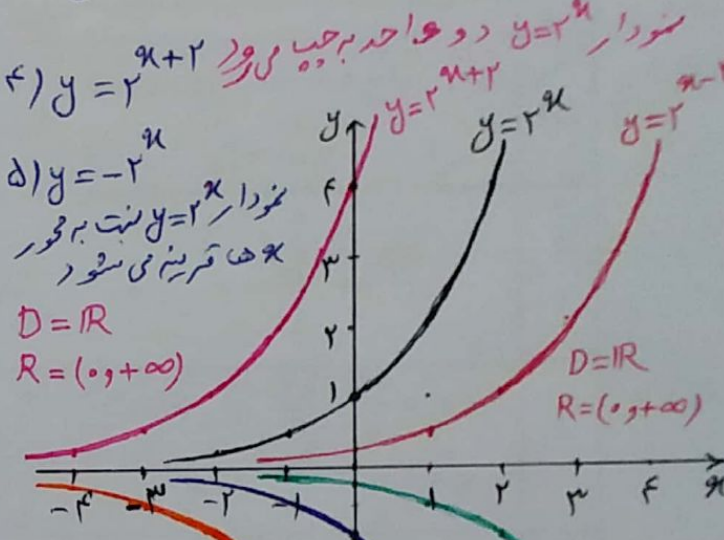 ۴) y = ۲^{x+۲} نمودار y=۲^x دو واحد به چپ می‌رود
۵) y = -۲^x
نمودار y=۲^x نسبت به محور
x ها قرینه می‌شود
y
y=۲^{x+۲}
y=۲^x
D = ℝ
R = (۰, +∞)
D=ℝ
R=(۰, +∞)
۴
۳
۲
۱
-۴ -۳ -۲ -۱ ۱ ۲ ۳ ۴ x